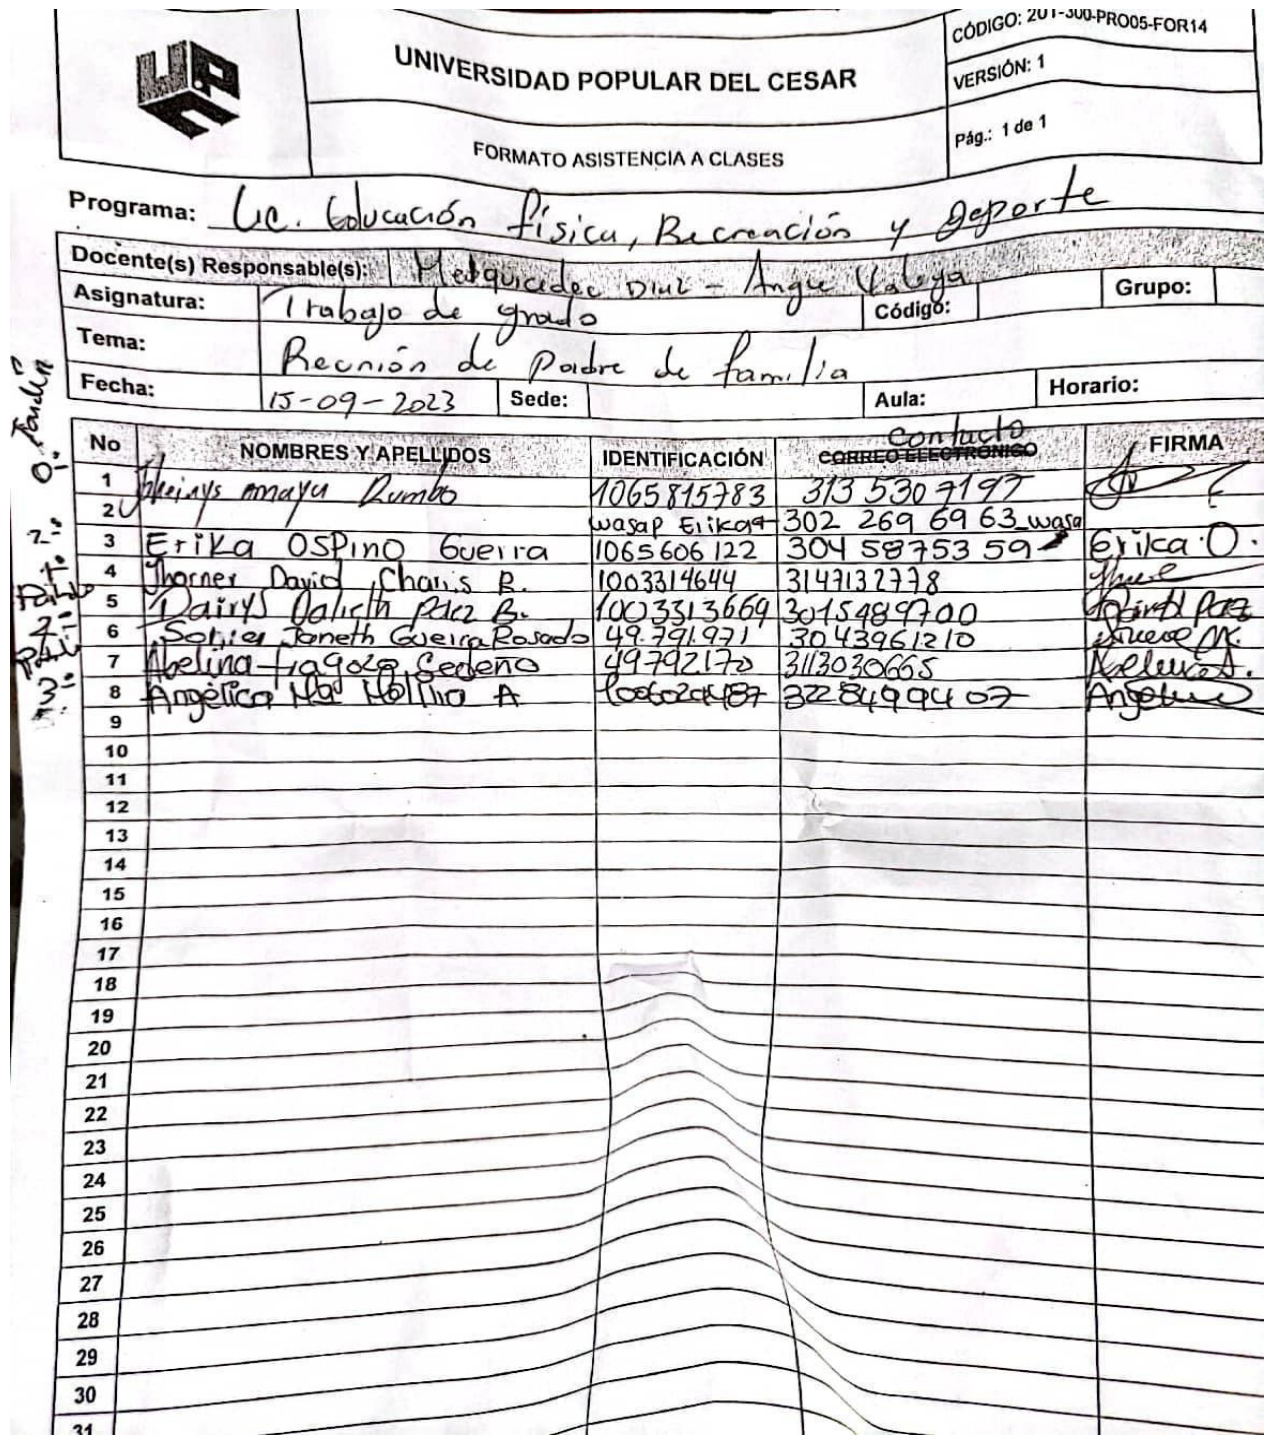 UPC
UNIVERSIDAD POPULAR DEL CESAR
FORMATO ASISTENCIA A CLASES
CÓDIGO: 201-300-PRO05-FOR14
VERSIÓN: 1
Pág.: 1 de 1
Programa: Lic. Educación física, Recreación y Deporte
Docente(s) Responsable(s): Melquicedec Diaz - Angie
Asignatura: Trabajo de grado Código: Grupo:
Tema: Reunión de Padre de familia
Fecha: 15-09-2023 Sede: Aula: Horario:
contacto
No NOMBRES Y APELLIDOS IDENTIFICACIÓN CORREO ELECTRÓNICO FIRMA
1 maya Rumbo 1065815783 313 530 7197
2 wasap Erika 302 269 69 63 wasa
3 Erika OSPINO Guerra 1065606122 304 58753 59 Erika O.
4 David Charis B. 1003314644 3147132778
5 Dairys Dalieth Paez B. 1003313669 3015489700 Paez
6 Janeth Guerra Rosado 49.791.971 3043961210
7 Abelina Fragozo Cedeño 49792170 3113030665
8 Angélica Ma A 3228499407
9
10
11
12
13
14
15
16
17
18
19
20
21
22
23
24
25
26
27
28
29
30
31